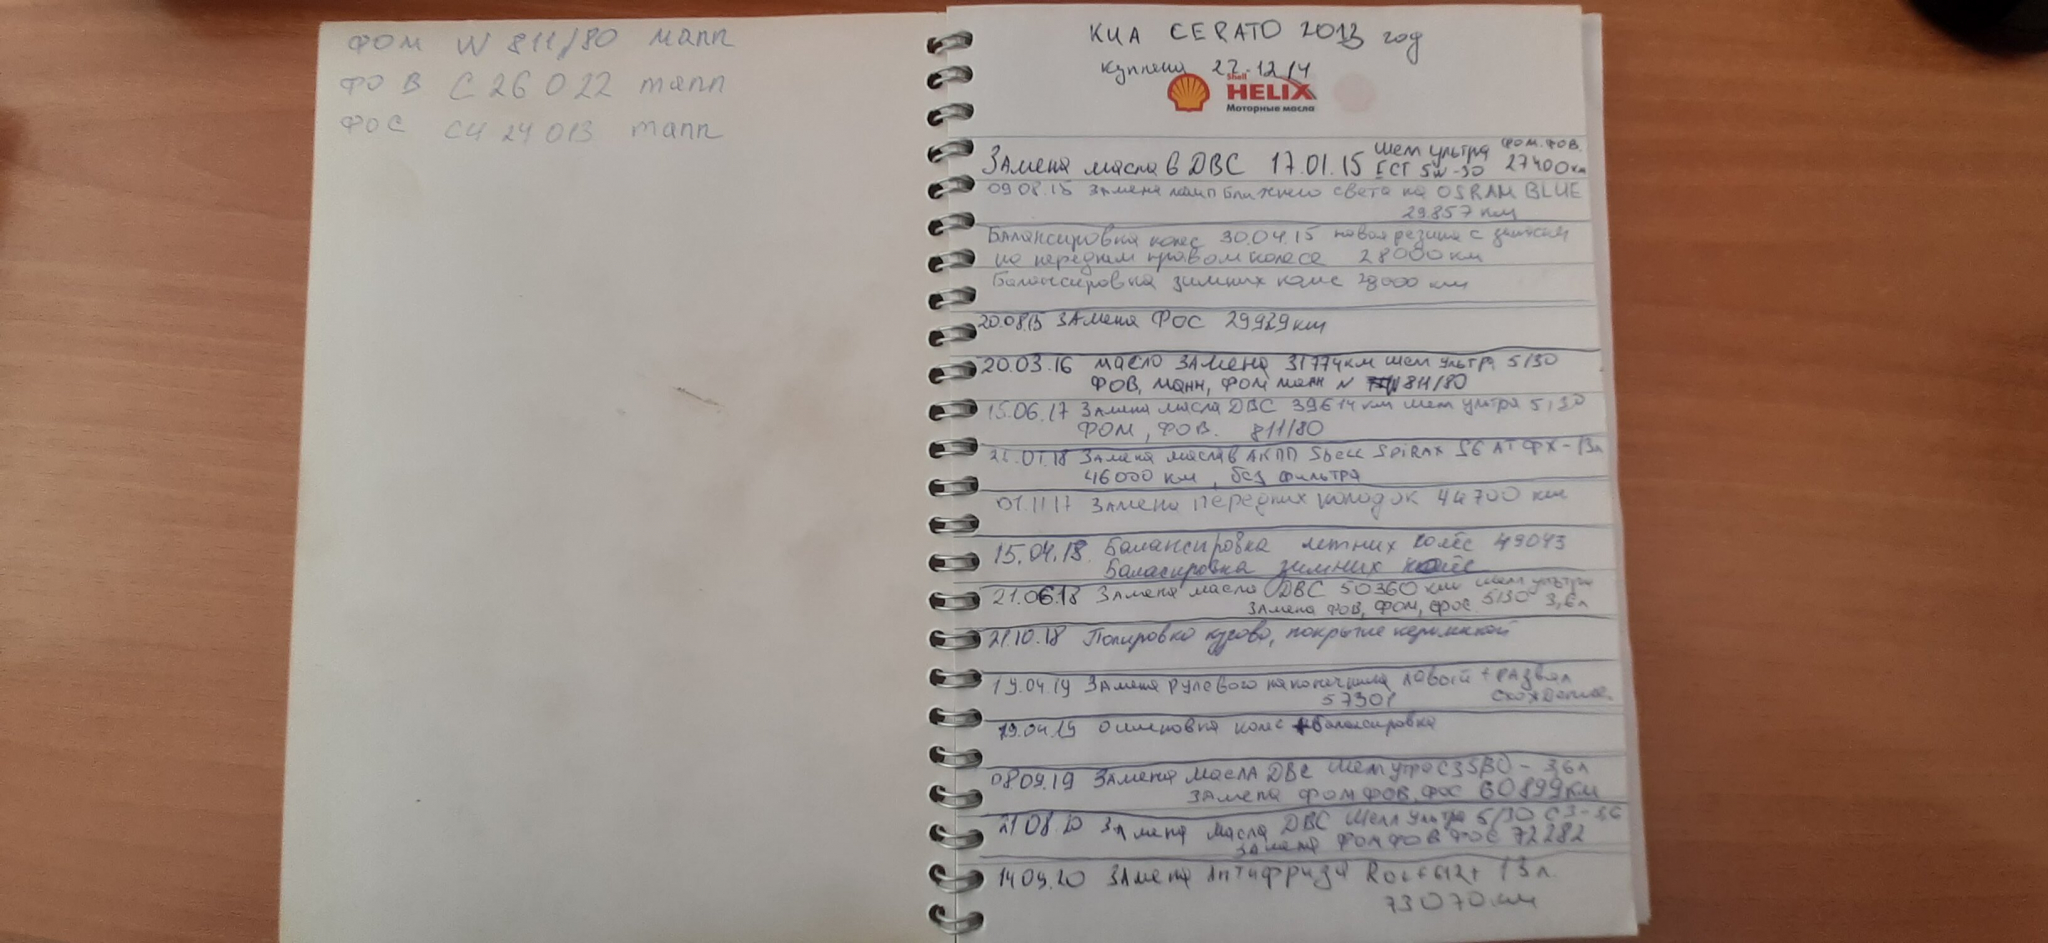 ФОМ W 811/80 манн
ФОВ С 26 022 манн
ФОС СЧ 24013 манн
КИА CERATO 2013 год
куплена 27.12.14
Shell
HELIX
Моторные масла
Замена масла в ДВС 17.01.15 шелл ультра ECT 5W-30 ФОМ. ФОВ. 27400км
09.08.15 Замена ламп ближнего света на OSRAM BLUE
29.857 км
Балансировка колес 30.04.15 новая резина с
на переднем правом колесе 28000 км
Балансировка зимних колес 28000 км
20.08.15 Замена ФОС 29929км
20.03.16 масло замена 31774км шелл ультра 5/30
ФОВ, манн, ФОМ манн W 811/80
15.06.17 Замена масла ДВС 39614км шелл ультра 5/30
ФОМ, ФОВ. 811/80
.01.18 Замена масла в АКПП Shell SPIRAX S6 АТФ X -
46000 км, без фильтра
01.11.17 Замена передних колодок 44700 км
15.04.18 Балансировка летних колёс 49043
Баласировка зимних колёс
21.06.18 Замена масла ДВС 50360 км шелл ультра
замена ФОВ, ФОМ, ФОС 5/30 3,6л
21.10.18 Полировка кузова, покрытие керамикой
19.04.19 Замена рулевого наконечника левый + развал
57301 схождение
19.04.19 ошиновка колес + балансировка
08.09.19 Замена масла ДВС шелл утра С3 5/30 - 3,6л
замена ФОМ ФОВ, ФОС 60899км
21.08.20 Замена масла ДВС Шелл ультра 5/30 С3 - 3,6
замена ФОМ ФОВ ФОС 72282
14.09.20 Замена Антифриза 13л.
73070 км